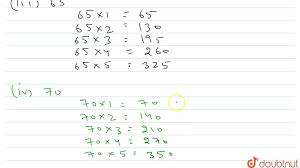 (iii) 65
65×1 = 65
65×2 = 130
65×3 = 195
65×4 = 260
65×5 = 325
(iv) 70
70×1 = 70
70×2 = 140
70×3 = 210
70×4 = 270
70×5 = 350
doubtnut